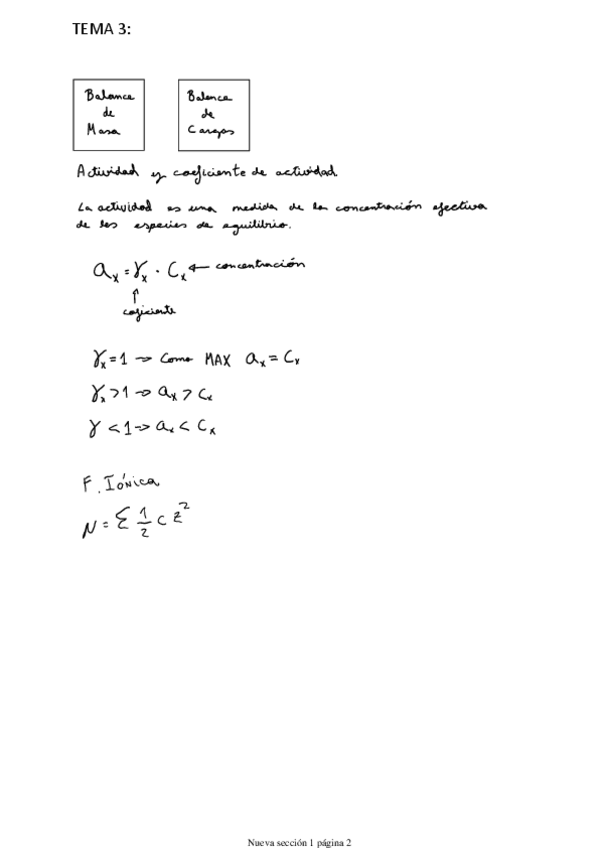 TEMA 3:
Balance
de
Masa
Balance
de
Cargas
Actividad y coeficiente de actividad
La actividad es una medida de la concentración efectiva
de las especies de equilibrio.
aₓ = γₓ · Cₓ ← concentración
↑
coeficiente
γₓ = 1 → Como MAX aₓ = Cₓ
γₓ > 1 → aₓ > Cₓ
γ < 1 → aₓ < Cₓ
F. Iónica
N = Σ 1/2 c z²
Nueva sección 1 página 2